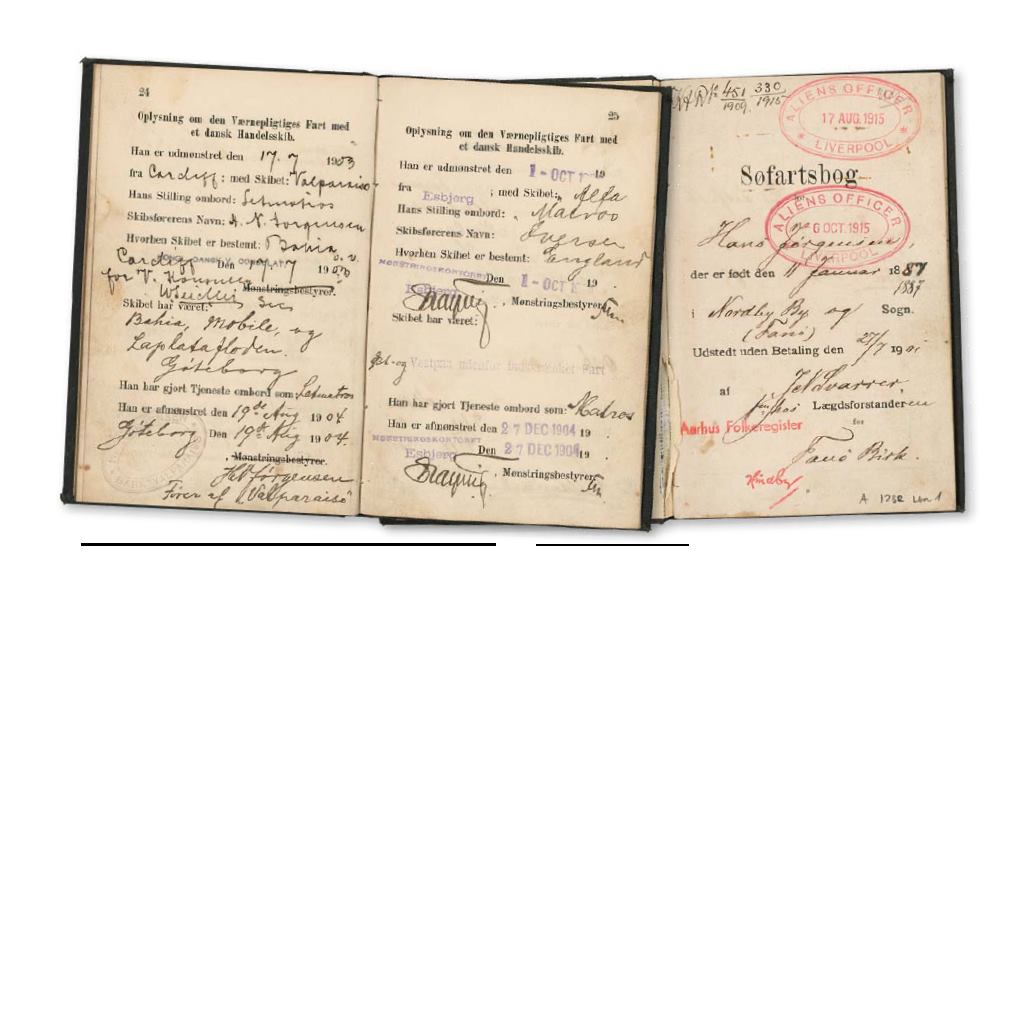 24
Oplysning om den Værnepligtiges Fart med
et dansk Handelsskib.
Han er udmønstret den 17. 7 1903
fra Cardiff: med Skibet: Valparaiso
Hans Stilling ombord: Letmatros
Skibsførerens Navn: H. N. Jorgensen
Hvorhen Skibet er bestemt: Bahia
Cardiff Den 17. 7 1903 o. v.
for V.
Mønstringsbestyrer.
Skibet har været:
Bahia, Mobile, og
Laplatafloden.
Göteborg
Han har gjort Tjeneste ombord som: Letmatros
Han er afmønstret den 19de Aug 1904
Göteborg Den 19de Aug 1904.
, Mønstringsbestyrer.
Jørgensen
Fører af "Valparaiso"
25
Oplysning om den Værnepligtiges Fart med
et dansk Handelsskib.
Han er udmønstret den 1-OCT 19
fra Esbjerg ; med Skibet: Alfa
Hans Stilling ombord: Matros
Skibsførerens Navn: Iversen
Hvorhen Skibet er bestemt: England
MØNSTRINGSKONTORET
Esbjerg Den 1-OCT 19
, Mønstringsbestyrer
Skibet har været:
Øst- og Vestpaa udenfor indskrænket Fart
Han har gjort Tjeneste ombord som: Matros
Han er afmønstret den 27 DEC 1904 19
MØNSTRINGSKONTORET
Esbjerg Den 27 DEC 1904 19
, Mønstringsbestyrer
451 330
1909. 1915
ALIENS OFFICER
17 AUG. 1915
LIVERPOOL
Søfartsbog
for
ALIENS OFFICER
6 OCT. 1915
LIVERPOOL
Hans Jørgensen,
der er født den 11 Januar 1887
1887
i Nordby By og Sogn.
(Fanö)
Udstedt uden Betaling den 27/7 1901
af
Lægdsforstanderen
for
Aarhus Folkeregister
Fanö Birk.